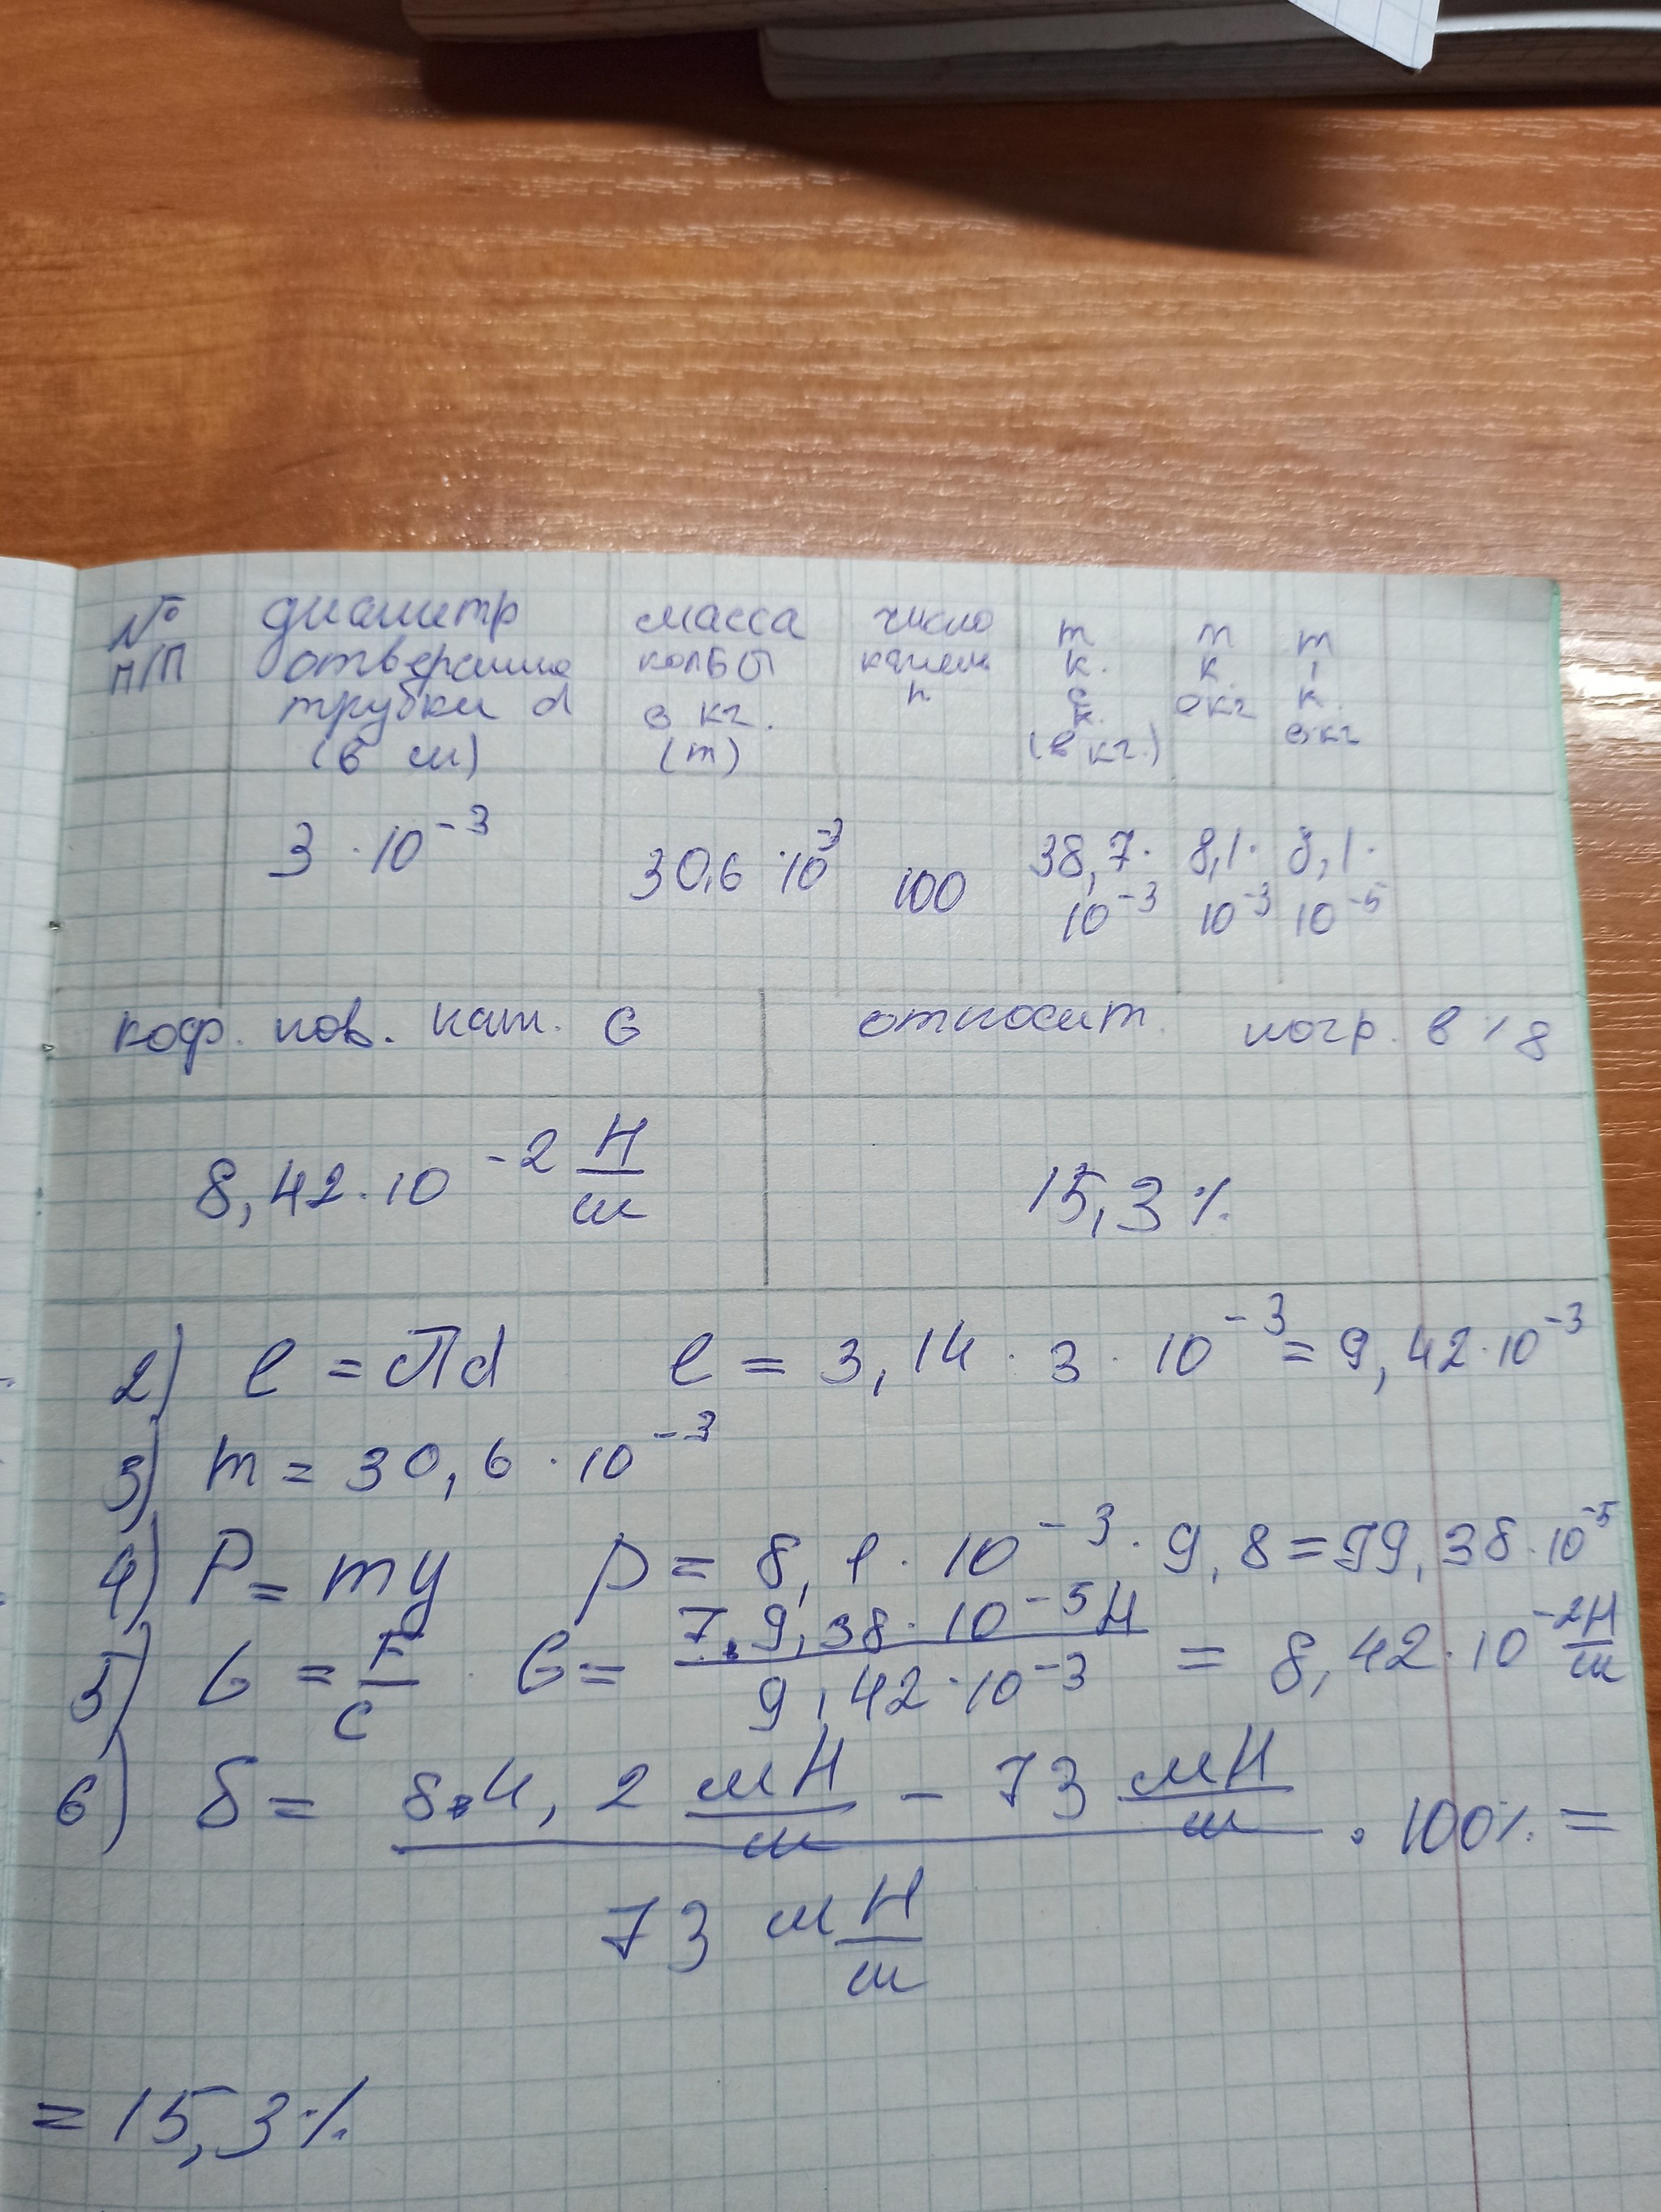 № п/п
диаметр отверстия трубки d (в м)
масса колбы в кг. (m)
число капель n
m к. с к. (в кг.)
m к. в кг
m 1 к. в кг
3 · 10⁻³
30,6 · 10⁻³
100
38,7 · 10⁻³
8,1 · 10⁻³
8,1 · 10⁻⁵
коэф. пов. нат. G
относит. погр. в % δ
8,42 · 10⁻² Н/м
15,3 %
2) l = πd l = 3,14 · 3 · 10⁻³ = 9,42 · 10⁻³
3) m = 30,6 · 10⁻³
4) P = mg p = 8,1 · 10⁻³ · 9,8 = 79,38 · 10⁻⁵
5) G = F/C G = 79,38 · 10⁻⁵ Н / 9,42 · 10⁻³ = 8,42 · 10⁻² Н/м
6) δ = (84,2 мН/м − 73 мН/м) / 73 мН/м · 100% =
= 15,3 %